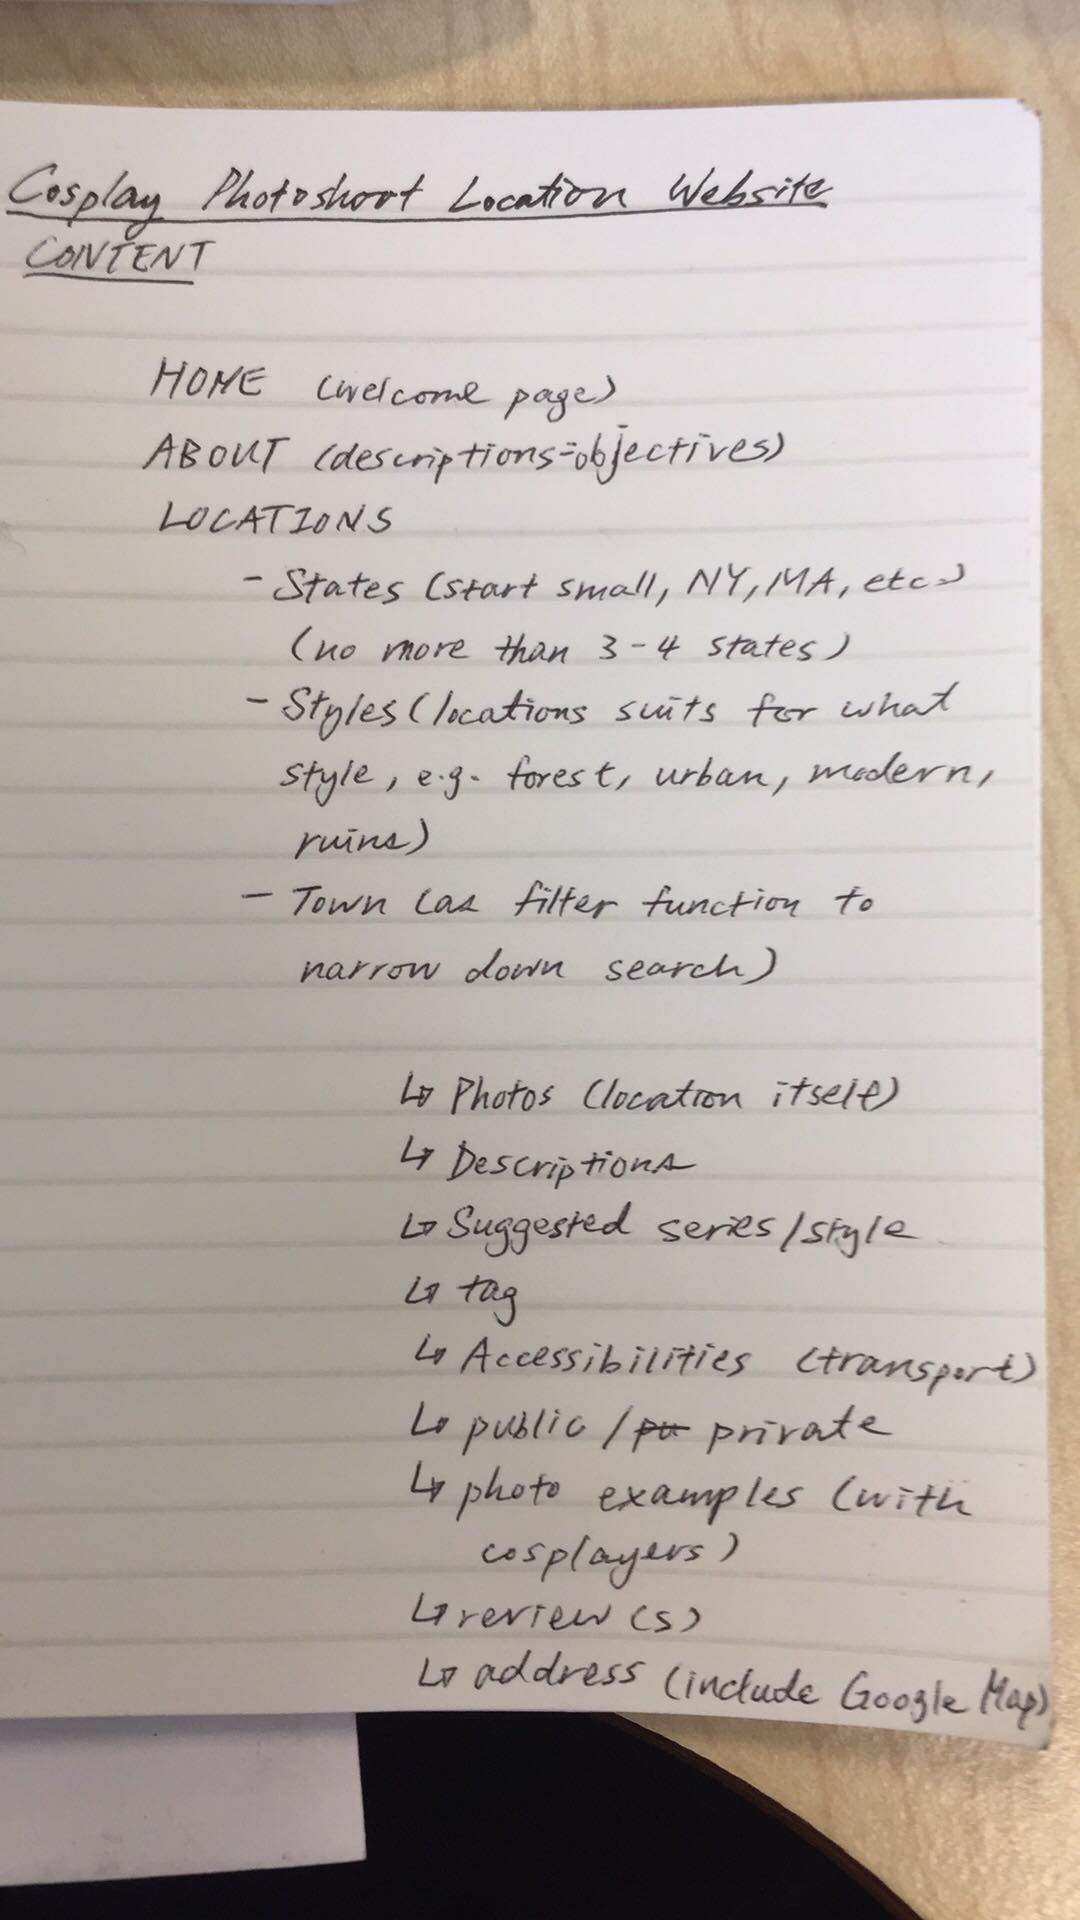 Cosplay Photoshoot Location Website
CONTENT
HOME (welcome page)
ABOUT (descriptions=objectives)
LOCATIONS
- States (start small, NY, MA, etc.)
(no more than 3-4 states)
- Styles (locations suits for what
style, e.g. forest, urban, modern,
ruins)
- Town (as filter function to
narrow down search)
↳ Photos (location itself)
↳ Descriptions
↳ Suggested series/style
↳ tag
↳ Accessibilities (transport)
↳ public / pu private
↳ photo examples (with
cosplayers)
↳ review(s)
↳ address (include Google Map)